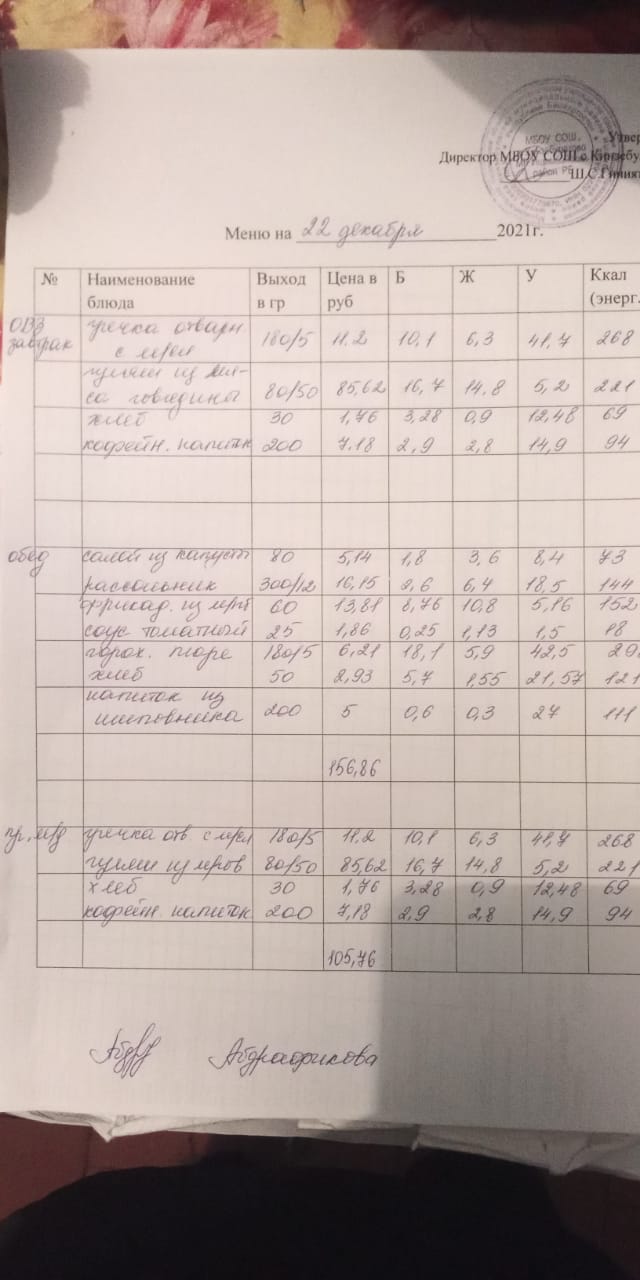 МБОУ СОШ
район РБ
Утвер
Директор МБОУ СОШ с.Киргебу
Ш.С.Гиният
Меню на 22 декабря 2021г.
№ Наименование блюда Выход в гр Цена в руб Б Ж У Ккал (энерг.
ОВЗ завтрак гречка отварн с 180/5 11.2 10,1 6,3 41,7 268
гуляш из мяса говядины 80/50 85,62 16,7 14,8 5,2 221
хлеб 30 1,76 3,28 0,9 12,48 69
кофейн. напиток 200 7.18 2,9 2,8 14,9 94
обед салат из капусты 80 5,14 1,8 3,6 8,4 73
рассольник 300/12 16,15 2,6 6,4 18,5 144
фрикад. из 60 13,81 8,76 10,8 5,16 152
соус томатный 25 1,86 0,25 1,13 1,5 18
горох. пюре 180/5 6,21 18,1 5,9 42,5 29
хлеб 50 2,93 5,7 1,55 21,57 121
напиток из шиповника 200 5 0,6 0,3 27 111
156,86
гречка отв. с 180/5 11.2 10,1 6,3 41,7 268
гуляш из 80/50 85,62 16,7 14,8 5,2 221
хлеб 30 1,76 3,28 0,9 12,48 69
кофейн. напиток 200 7,18 2,9 2,8 14,9 94
105,76
Абдрафикова